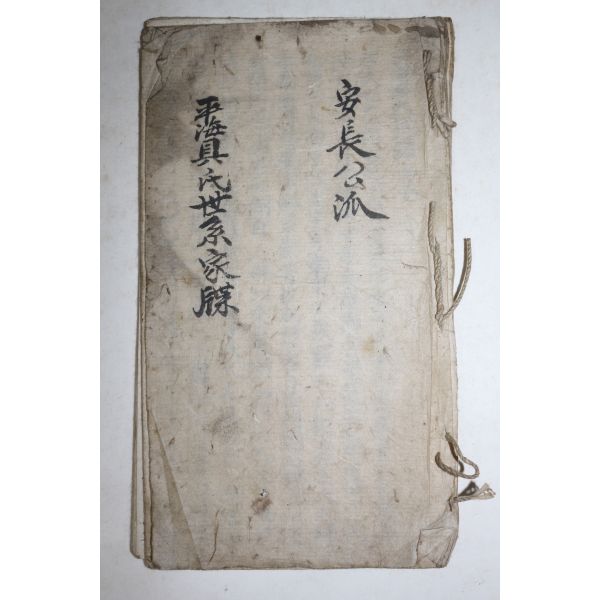 安長公派
平海具氏世系家牒